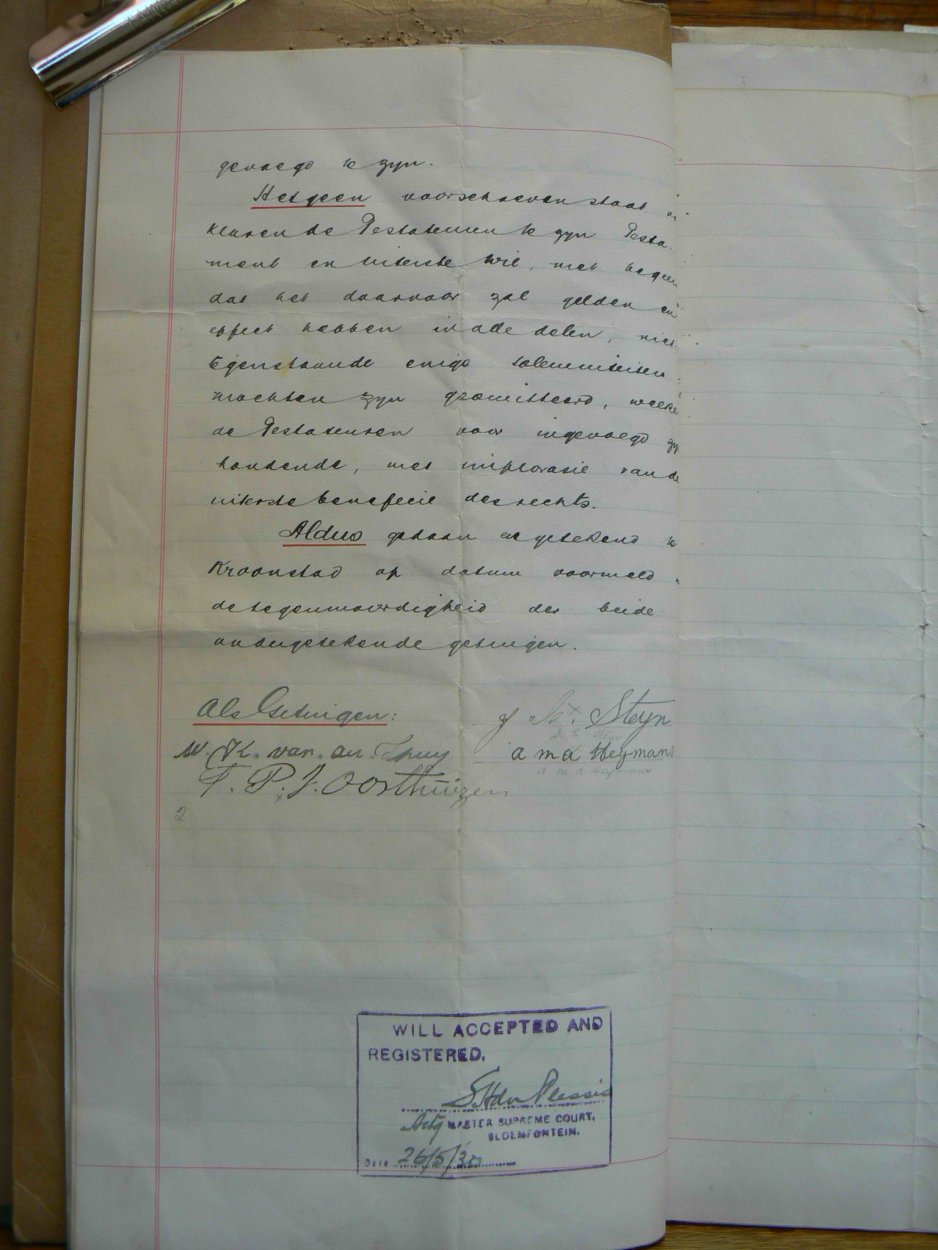 gevoegd te zyn.
Hetgeen voorschreven staat
klaren de Testateuren te zyn Testa-
ment en uiterste wil, met begeer
dat het daarvoor zal gelden en
effect hebben in alle delen, niet
tegenstaande enige solemniteiten
mochten zyn geomitteerd, welke
de Testateuren voor ingevoegd zyn
houdende, met imploratie van de
uiterste beneficie des rechts.
Aldus gedaan en getekend te
Kroonstad op datum voormeld
de tegenwoordigheid der beide
ondergetekende getuigen.
Als Getuigen:
Steyn
W. K. van
a m a Heymans
a m a Heymans
T. P. J. Oosthuizen
2
WILL ACCEPTED AND
REGISTERED.
du Plessis
Actg MASTER SUPREME COURT,
BLOEMFONTEIN.
Date 26/5/30